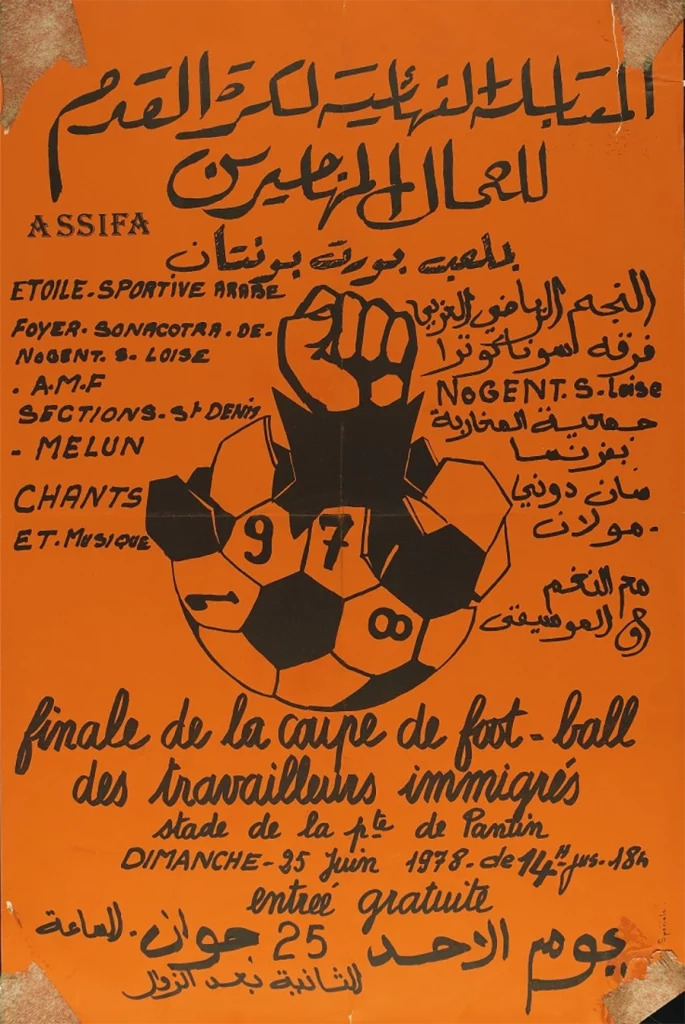 المقابلة النهائية لكرة القدم
للعمال المهاجرين
ASSIFA
بملعب بورت بونتان
ETOILE-SPORTIVE ARABE
FOYER-SONACOTRA-DE-
NOGENT. S. LOISE
. A.M.F
SECTIONS-St DENIS
- MELUN
CHANTS
ET-MUSIQUE
النجم الرياضي العربي
فرقة سوناكوترا
NOGENT.S-Loise
جمعية المغاربة
بفرنسا
سان دوني
- مولان
مع النغم
و الموسيقى
1 9 7 8
finale de la coupe de foot-ball
des travailleurs immigrés
stade de la pte de Pantin
DIMANCHE-25 Juin 1978-de 14H jus-18h
entreé gratuite
يوم الاحد 25 جوان - الساعة
الثانية بعد الزوال